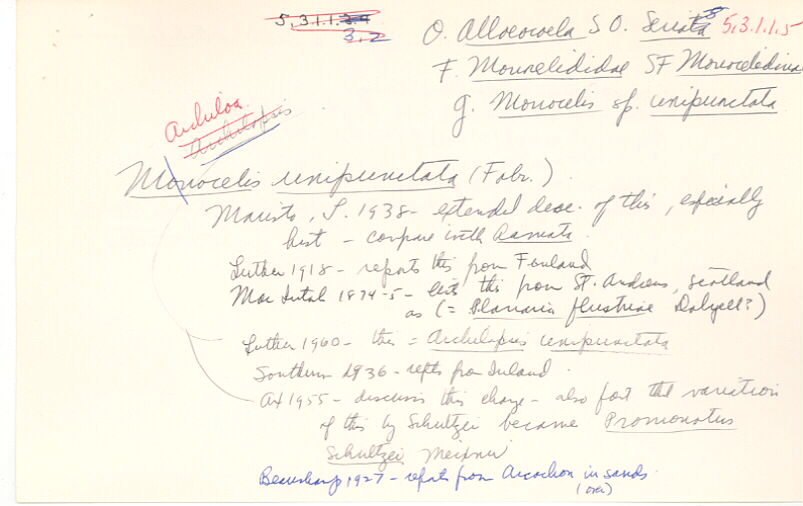 5,3.1.1.
3.2
O. Alloeocoela SO. Seriata 5,3.1.1.5
F. Monocelididae SF Monocelidinae
g. Monocelis sp. unipunctata
Archiloa
Archilopsis
Monocelis unipunctata (Fabr.)
1938 - extended desc. of this, especially
hist - compare with
Luther 1918 - reports this from Finland
Mac Intosh 1874-5 - lists this from St. Andrews, Scotland
as (= Planaria flustrae Dalyell?)
Luther 1960 - this = Archilopsis unipunctata
Southern 1936 - repts from Ireland.
Ax 1955 - discusses this change - also fact the variation
of this by Schultzei became Promonotus
Schultzei Meixner
Beauchamp 1927 - reports from Arcachon in sands.
(over)